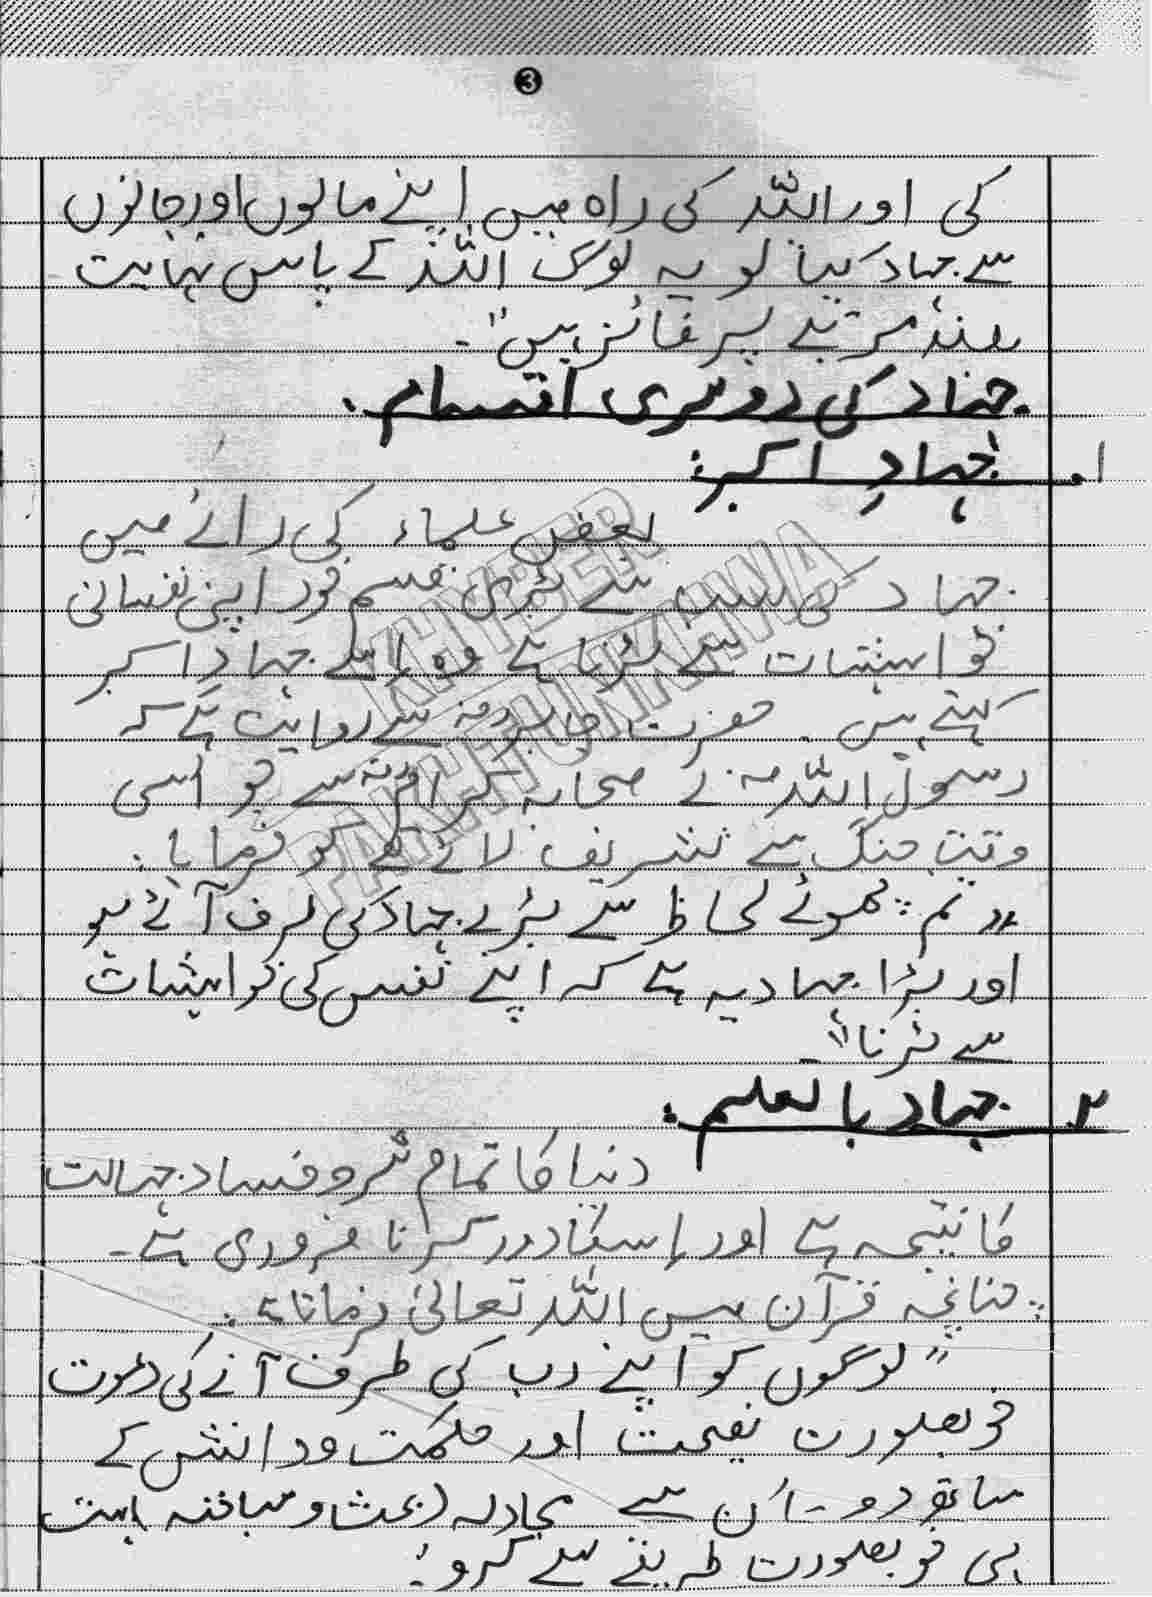 3
کی اور اللہ کی راہ میں اپنے مالوں اور جانوں
سے جہاد کیا تو یہ لوگ اللہ کے پاس نہایت
بلند مرتبے پر فائز ہیں"۔
جہاد کی دوسری اقسام:
۱. جہادِ اکبر:
بعض علماء کی رائے میں
جہاد کی سب سے بڑی قسم خود اپنی نفسانی
خواہشات سے لڑنا ہے وہ اسے جہادِ اکبر
کہتے ہیں۔ حضرت جابرؓ سے روایت ہے کہ
رسول اللہؐ نے صحابہ کرامؓ سے جو اسی
وقت جنگ سے تشریف لائے تھے کو فرمایا:
"تم چھوٹے لحاظ سے بڑے جہاد کی طرف آئے ہو
اور بڑا جہاد یہ ہے کہ اپنے نفس کی خواہشات
سے لڑنا"۔
۲. جہاد بالعلم:
دنیا کا تمام شر و فساد جہالت
کا نتیجہ ہے اور اِسکا دور کرنا ضروری ہے۔
چنانچہ قرآن میں اللہ تعالیٰ فرماتا ہے:
"لوگوں کو اپنے رب کی طرف آنے کی دعوت
خوبصورت نصیحت اور حکمت و دانش کے
ساتھ دو۔ اُن سے مجادلہ (بحث و مباحثہ) بہت
ہی خوبصورت طریقے سے کرو"
KHYBER
PAKHTUNKHWA